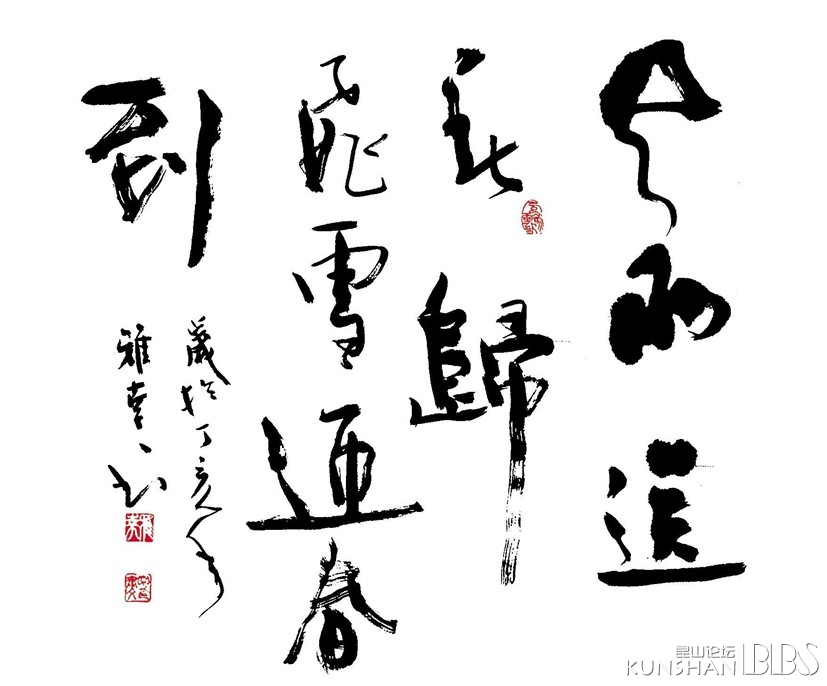 风雨送
春歸
飛雪迎春
到
歲於丁亥年
雅书
昆山论坛
KUNSHAN BBS